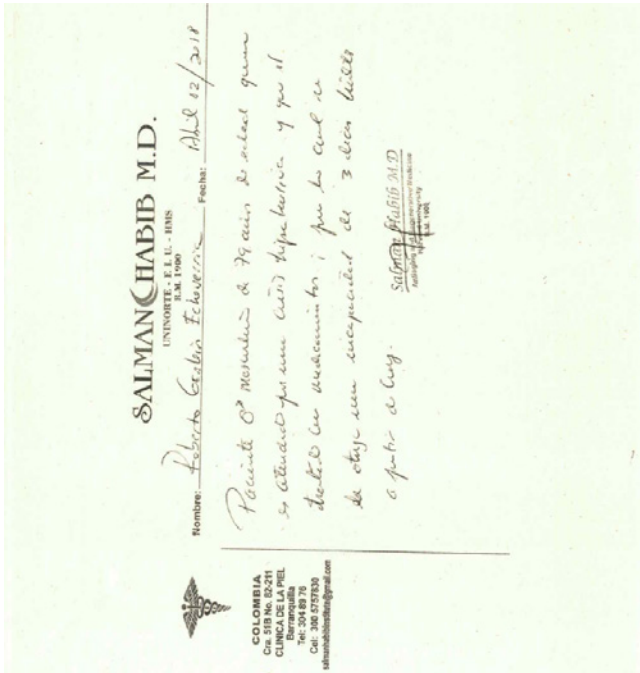 SALMAN HABIB M.D.
UNINORTE - E. I. U. - HMS
R.M. 1900
Nombre: Roberto Echeverria Fecha: Abril 02/2018
Paciente ♂ masculino de 79 años de edad quien
es atendido por una crisis hipertensiva y que es
tratado con medicamentos; por lo cual se
le otorga una incapacidad de 3 días hábiles
a partir de hoy.
Salman Habib M.D
R.M. 1900
COLOMBIA
Cra. 51B No. 82-211
CLINICA DE LA PIEL
Barranquilla
Tel: 304 89 76
Cel: 300 5757830